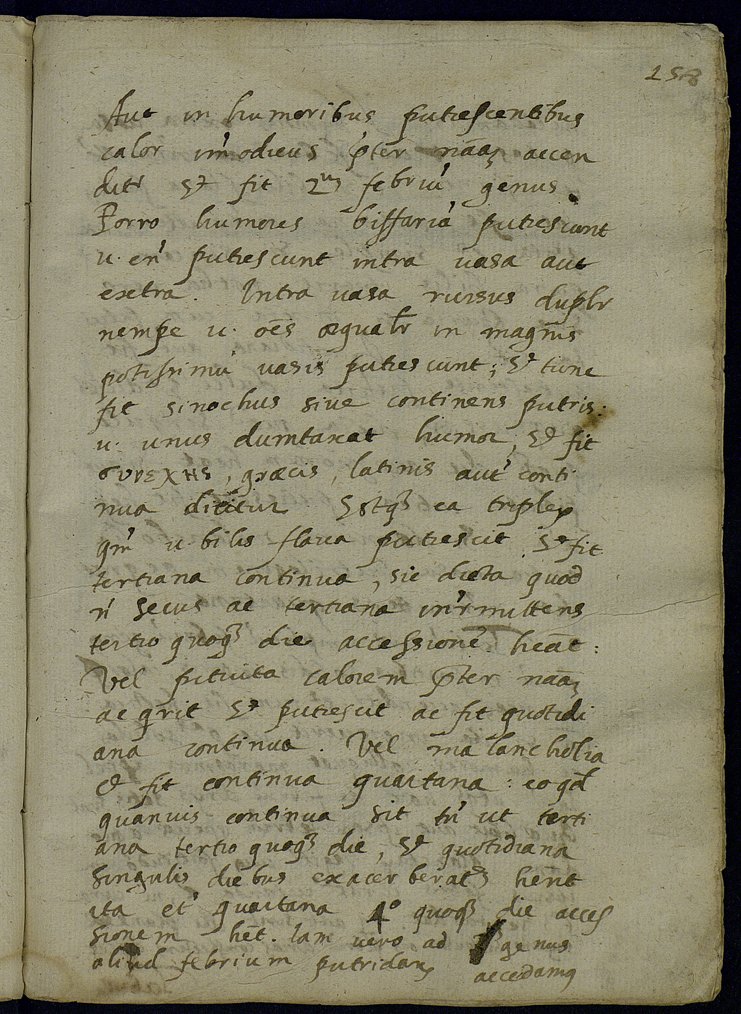 158
Aut in humoribus putrescentibus
calor im̄odicus p̄ter nāa᷒ accen
dit᷑ Et fit 2ᵘˢ febriū genus.
Porro humores biffariā putrescunt
u. en' putrescunt intra uasa aut
extra. Intra uasa rursus duplr̄
nempe u. oēs æqualr̄ in magnis
potissimū uasis putrescunt; Et tunc
fit sinochus siue continens putris:
u. unus dumtaxat humor, Et fit
συνεχης, græcis, latinis aut' conti
nua dicitur Estq᷒ ea triplex
qm̄ u. bilis flaua putrescit. Et fit
tertiana continua, sic dicta quod
n̄ secus ac tertiana int'rmittens
tertio quoq᷒ die accessionē heāt:
Vel pituita calorem p̄ter nāa᷒
acq̄rit Et putrescit ac fit quotidi
ana continua. Vel malancholia
et fit continua quartana: eo qd̄
quanuis continua sit tn̄ ut terti
ana tertio quoq᷒ die, Et quotidiana
singulis diebus exacerberat᷒ hent
ita et' quartana 4° quoq᷒ die acces
sionem het. Iam uero ad genus
aliud febrium putridar᷒ accedamꝰ